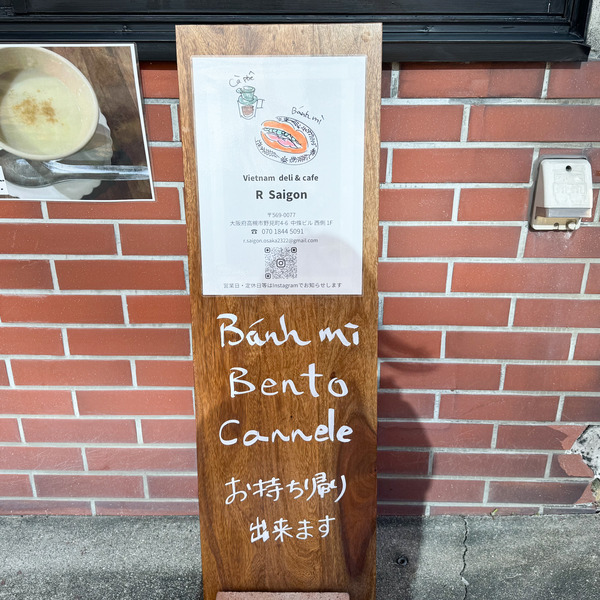 Cà phê
Bánh mì
Vietnam deli & cafe
R Saigon
〒569-0077
大阪府高槻市野見町4-6 中條ビル 西側 1F
☎ 070 1844 5091
r.saigon.osaka2322@gmail.com
営業日・定休日等はInstagramでお知らせします
Bánh mì
Bento
Cannele
お持ち帰り
出来ます